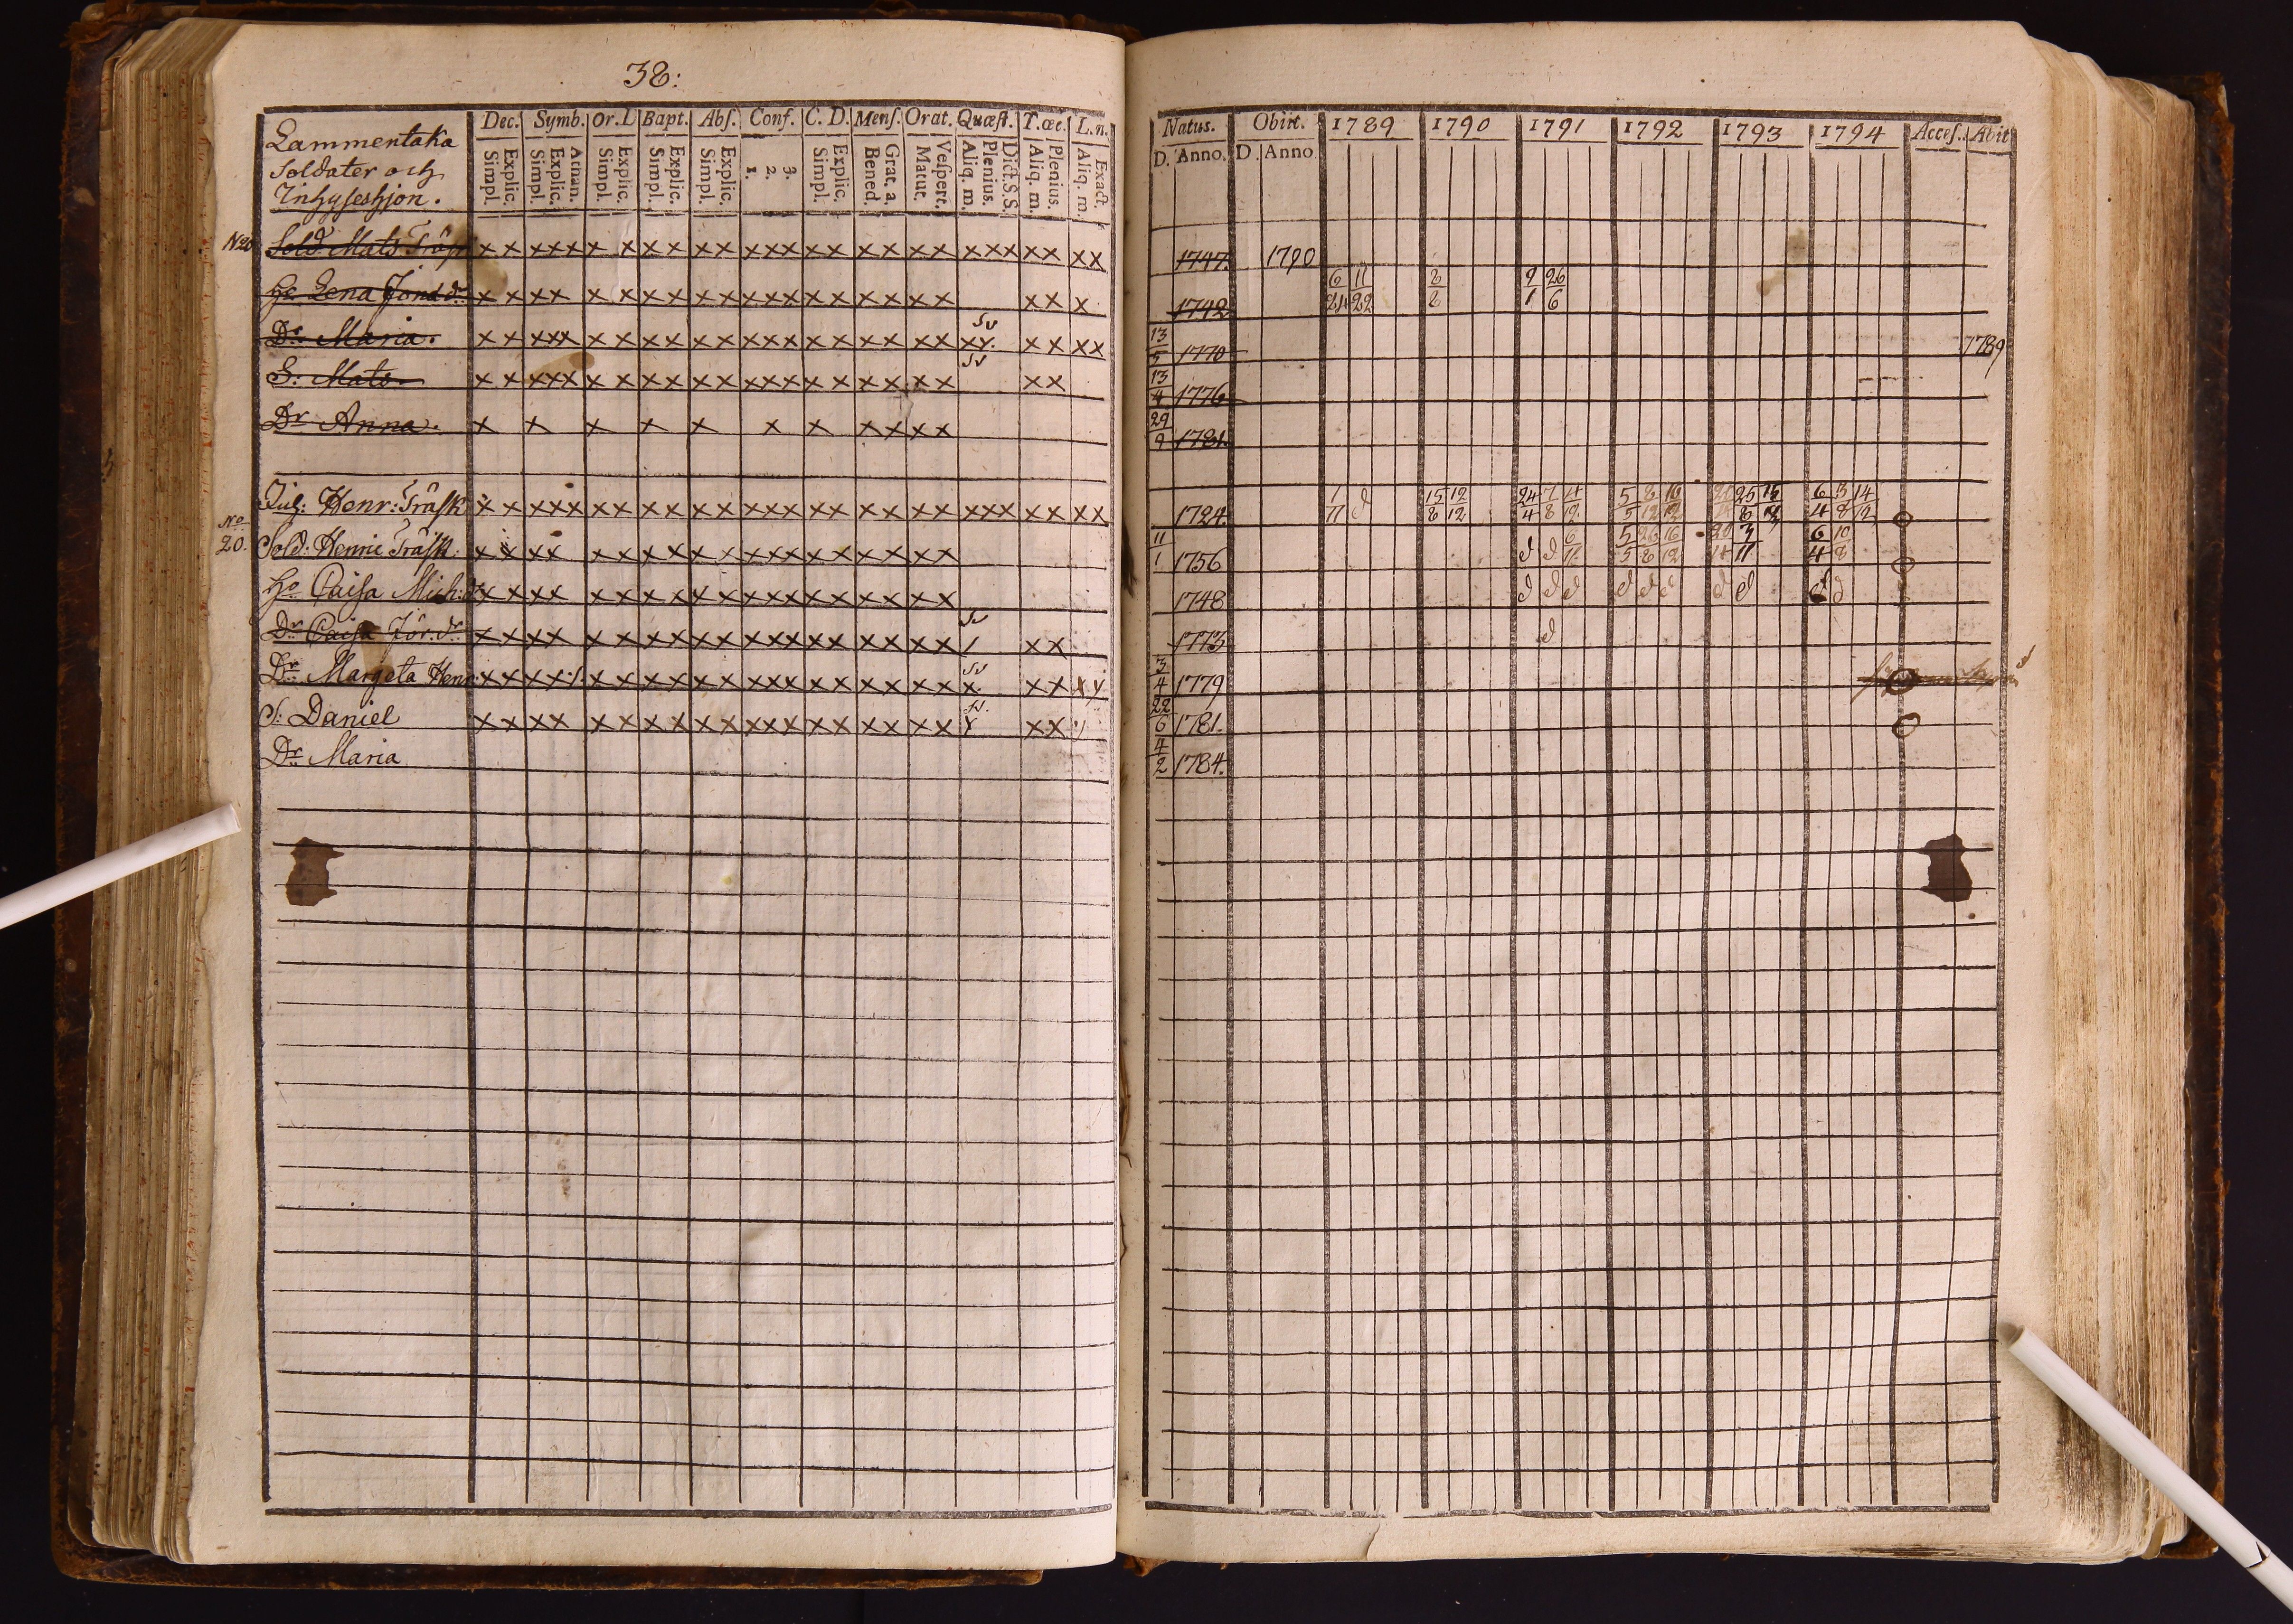 38:
Lammentaka
Soldater och
Inhyseshjon.
Dec. Symb. Or. D Bapt. Abſ. Conf. C. D. Menſ. Orat. Quæſt. T. œc. L. n.
Explic. Simpl. Athan. Explic. Simpl. Explic. Simpl. Explic. Simpl. Explic. Simpl. 3. 2. 1. Explic. Simpl. Grat. a. Bened. Veſpert. Matut. Dict. S.S. Plenius. Aliq. m. Plenius. Aliq. m. Exact. Aliq. m.
Natus. Obiit. 1789 1790 1791 1792 1793 1794 Acceſ. Abiit
D. Anno. D. Anno
N20 Sold. Mats Träsk x x x x x x x x x x x x x x x x x x x x x x x x x x x x x 1747. 1790
H:o Lena Jons dr x x x x x x x x x x x x x x x x x x x x x x x 1742 6/24 11/22 8/2 9/1 26/6
Dr Maria. x x x x x x x x x x x x x x x x x x x x x x x x x x x 13/5 1770 1789
S: Mats. x x x x x x x x x x x x x x x x x x x x x x 13/4 1776
Dr Anna. x x x x x x x x x x x 29/9 1781.
Inh: Henr: Träsk x x x x x x x x x x x x x x x x x x x x x x x x x x x x 1724. 1/11 d 15/8 12/12 24/4 7/8 5/5 8/12 6/4
No
20. Sold: Henric Träsk. x x x x x x x x x x x x x x x x x x x x 11/1 1756 d d 6/11 5/5 26/8 16/12 6/4 10/8
H:o Caisa Mich: dr x x x x x x x x x x x x x x x x x x x x 1748 d d d d d d d d d d
Dr Caisa Jör. dr x x x x x x x x x x x x x x x x x x x x x x 1773 d
Dr Margeta Henr: x x x x x x x x x x x x x x x x x x x x x x x x 3/4 1779
S: Daniel x x x x x x x x x x x x x x x x x x x x x x 22/6 1781.
Dr Maria 4/2 1784.